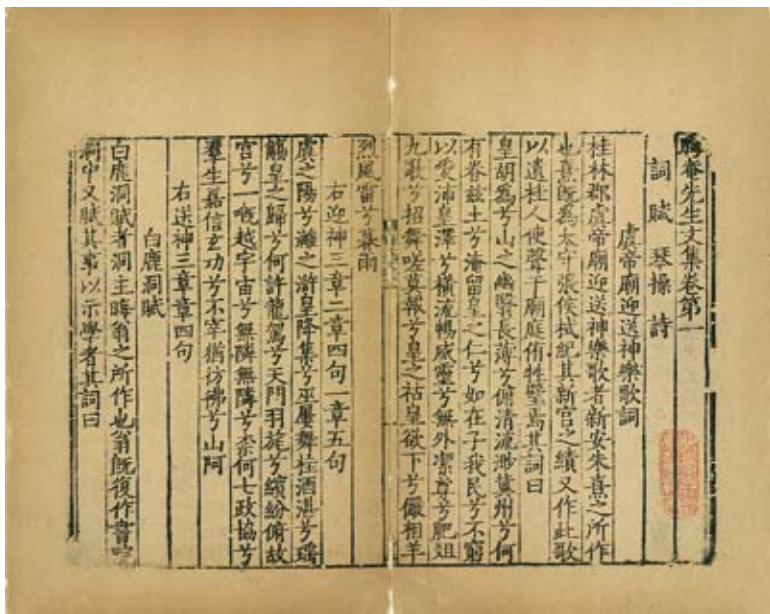 晦庵先生文集卷第一
詞 賦 琴操 詩
虞帝廟迎送神樂歌詞
桂林郡虞帝廟迎送神樂歌者新安朱熹之所作
也熹既為太守張侯栻紀其新宮之績又作此歌
以遺桂人使聲于廟庭侑牲璧焉其詞曰
皇胡為兮山之幽翳長薄兮俯清流渺冀州兮何
有眷茲土兮淹留皇之仁兮如在子我民兮不窮
以愛沛皇澤兮橫流暢威靈兮無外潔尊兮肥俎
九歌兮招舞嗟莫報兮皇之祜皇欲下兮儼相羊
烈風雷兮暮雨
右迎神三章二章四句一章五句
虞之陽兮灕之滸皇降集兮巫屢舞桂酒湛兮瑤
觴皇之歸兮何許龍駕兮天門羽旄兮繽紛俯故
宮兮一慨越宇宙兮無鄰無鄰兮柰何七政協兮
羣生嘉信玄功兮不宰猶彷彿兮山阿
右送神三章章四句
白鹿洞賦
白鹿洞賦者洞主晦翁之所作也翁既復作書院
洞中又賦其事以示學者其詞曰